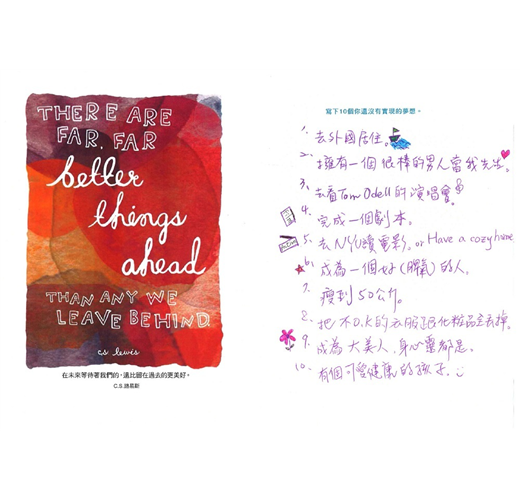 THERE ARE
FAR, FAR
better
things
ahead
THAN ANY WE
LEAVE BEHIND.
c.s. lewis
在未來等待著我們的,遠比留在過去的更美好。
C.S.路易斯
寫下10個你還沒有實現的夢想。
1. 去外國居住。
2. 擁有一個很棒的男人當我先生。
3. 去看Tom Odell的演唱會。
4. 完成一個劇本。
5. 去NYU讀電影. or Have a cozy home
6. 成為一個好(脾氣)的人。
7. 瘦到50公斤。
8. 把不O.K的衣服跟化粧品全丟掉。
9. 成為大美人,身心靈都是。
10. 有個可愛健康的孩子.